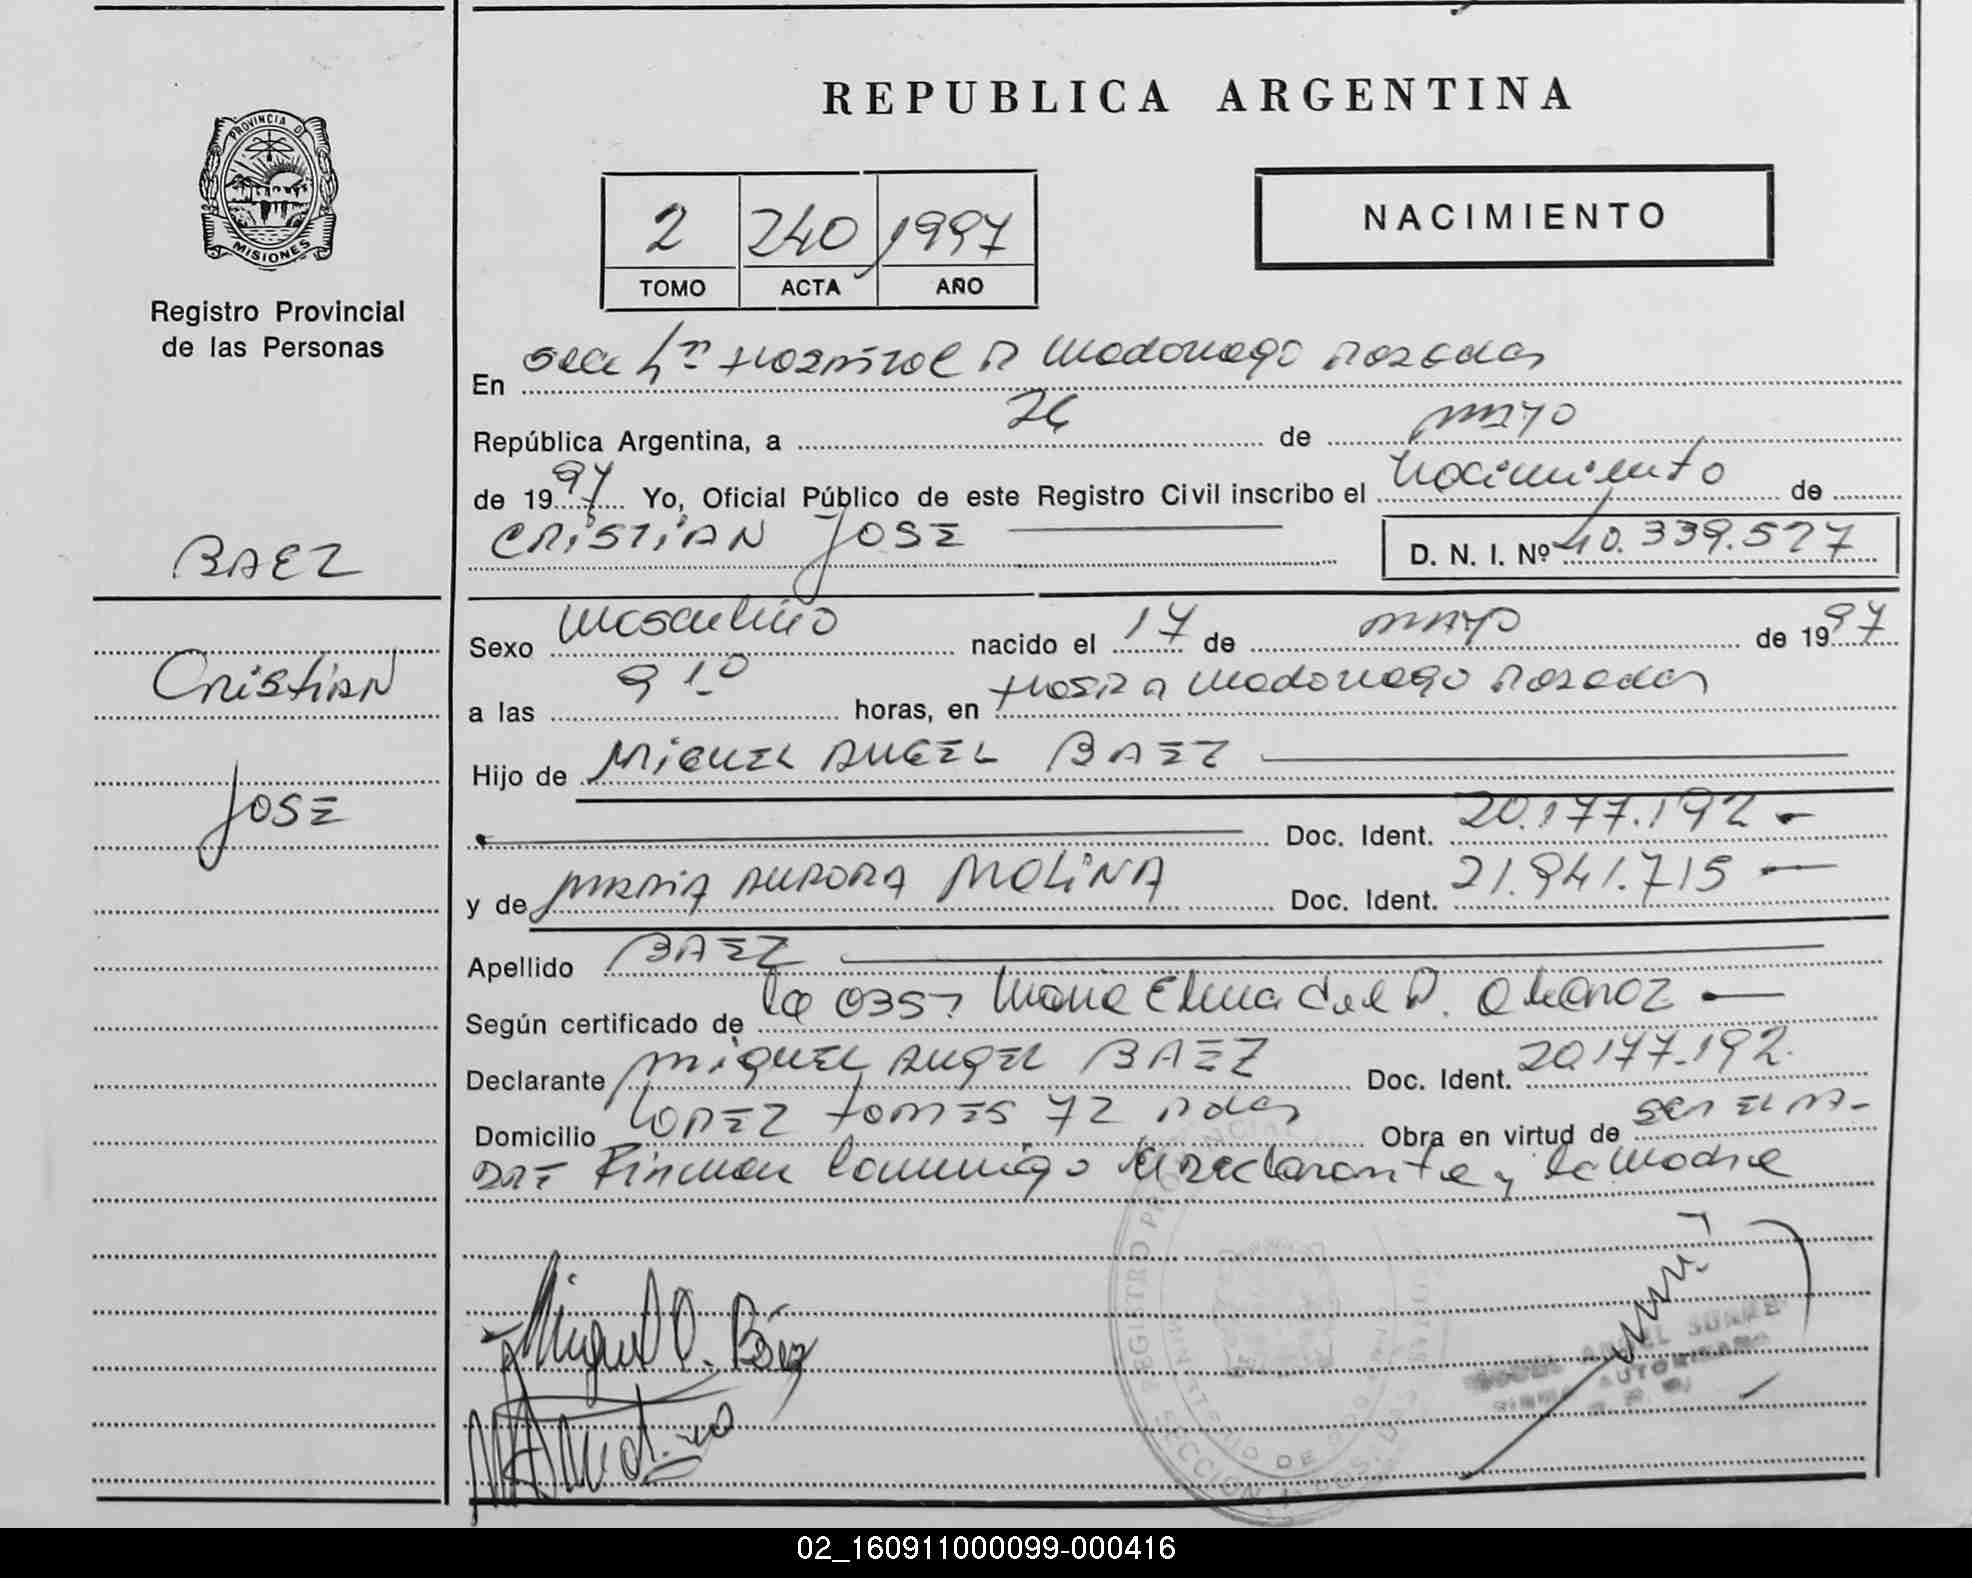 REPUBLICA ARGENTINA
PROVINCIA D
MISIONES
Registro Provincial
de las Personas
2 240 1997
TOMO ACTA AÑO
NACIMIENTO
En Hospital R Madariaga Posadas
República Argentina, a 26 de mayo
de 1997 Yo, Oficial Público de este Registro Civil inscribo el Nacimiento de
CRISTIAN JOSE D. N. I. Nº 40.339.527
BAEZ
Cristian
JOSE
Sexo Masculino nacido el 17 de mayo de 1997
a las 9 10 horas, en Hosp R Madariaga Posadas
Hijo de MIGUEL ANGEL BAEZ
Doc. Ident. 20.177.192 -
y de MARIA AURORA MOLINA Doc. Ident. 21.941.715 -
Apellido BAEZ
Según certificado de la Obst Maria Elena del
Declarante MIGUEL ANGEL BAEZ Doc. Ident. 20177.192.
Domicilio LOPEZ TORRES 72 Pdas Obra en virtud de SER EL PA-
DRE Firman conmigo el declarante y la madre
Miguel A. Báez
REGISTRO PROVINCIAL
SECCION
02_160911000099-000416